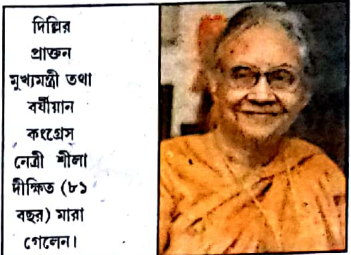 দিল্লির
প্রাক্তন
মুখ্যমন্ত্রী তথা
বর্ষীয়ান
কংগ্রেস
নেত্রী শীলা
দীক্ষিত (৮১
বছর) মারা
গেলেন।